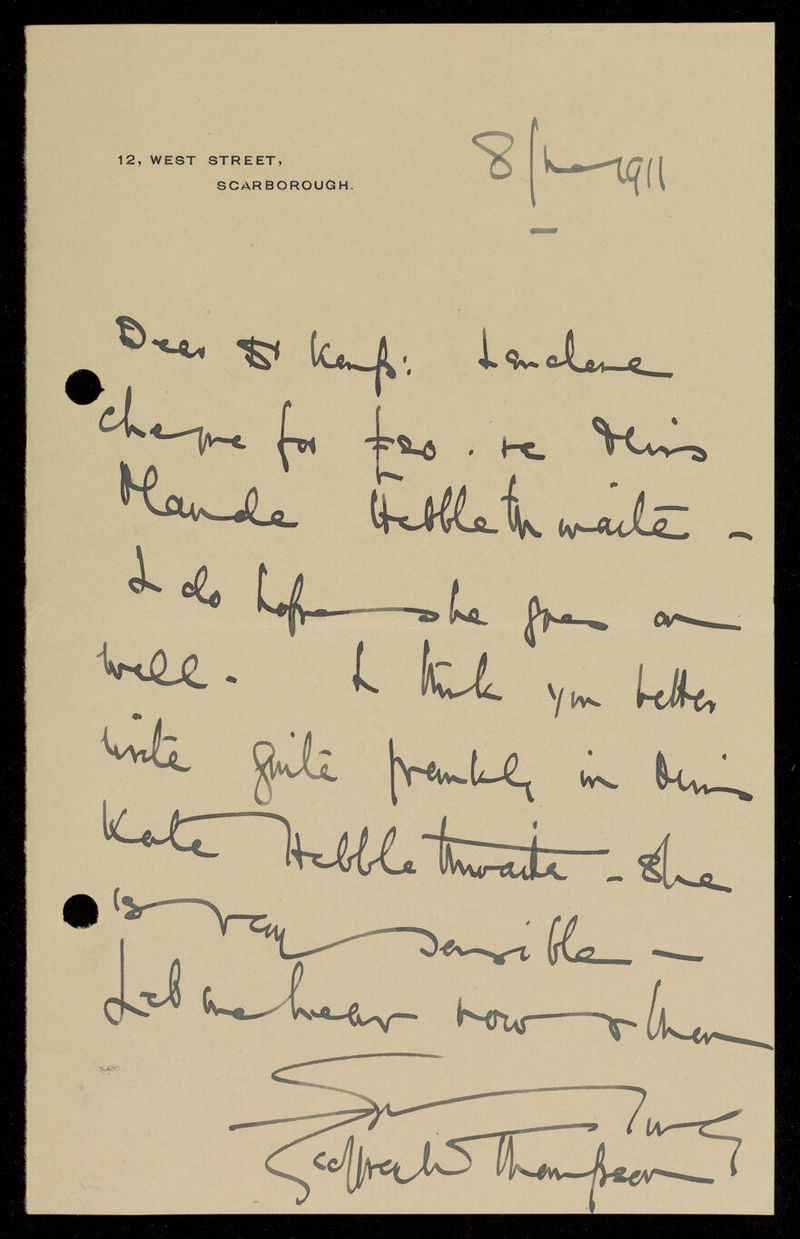 12, WEST STREET,
SCARBOROUGH.
8/ 1911
Dear Dr Kemp: I enclose
cheque for £20. re Miss
Maude Hebblethwaite -
I do hope she goes on
well. I think you better
write quite frankly to Miss
Kate Hebblethwaite - She
is very sensible -
Let me hear now & then
Sincerely
Godfrey W Thompson